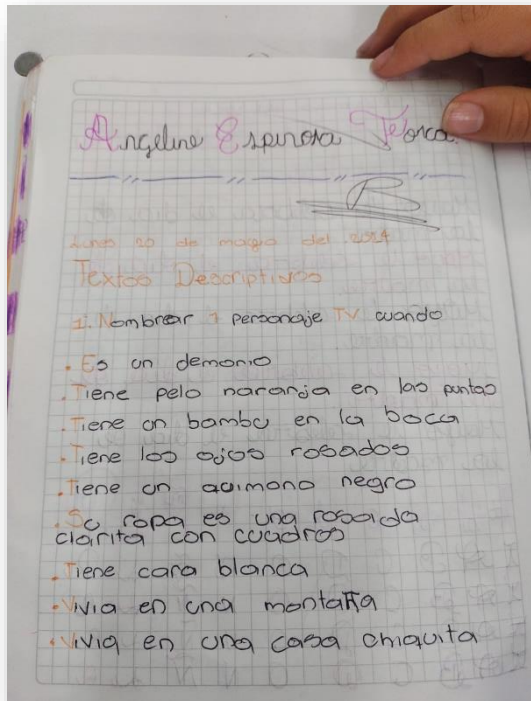 Angeline Espinosa Tosca
B
Lunes 20 de mayo del 2024
Textos Descriptivos
1. Nombrar 1 personaje TV cuando
. Es un demonio
. Tiene pelo naranja en las puntas
. Tiene un bambu en la boca
. Tiene los ojos rosados
. Tiene un quimono negro
. Su ropa es una rosaida
clarita con cuadros
. Tiene cara blanca
. Vivia en una montaña
. Vivia en una casa chiquita